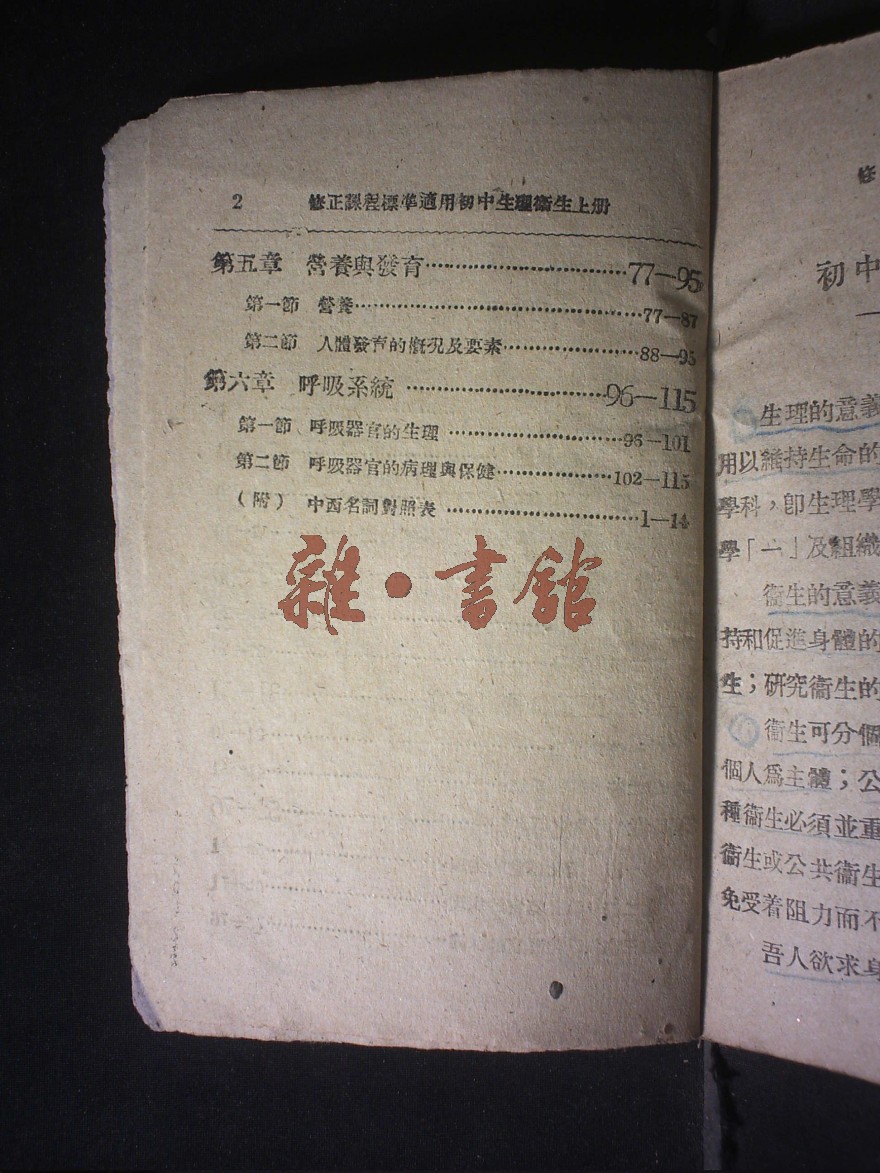 2 修正課程標準適用初中生理衞生上册
第五章 營養與發育……………………77—95
第一節 營養……………………………77—87
第二節 人體發育的概況及要素……………88—95
第六章 呼吸系統……………………96—115
第一節 呼吸器官的生理……………………96—101
第二節 呼吸器官的病理與保健……………102—115
(附) 中西名詞對照表……………………1—14
雜·書館
修
初中
生理的意義
用以維持生命的
學科，卽生理學
學「一」及組織
衞生的意義
持和促進身體的
生；研究衞生的
衞生可分個
個人爲主體；公
種衞生必須並重
衞生或公共衞生
免受着阻力而不
吾人欲求身